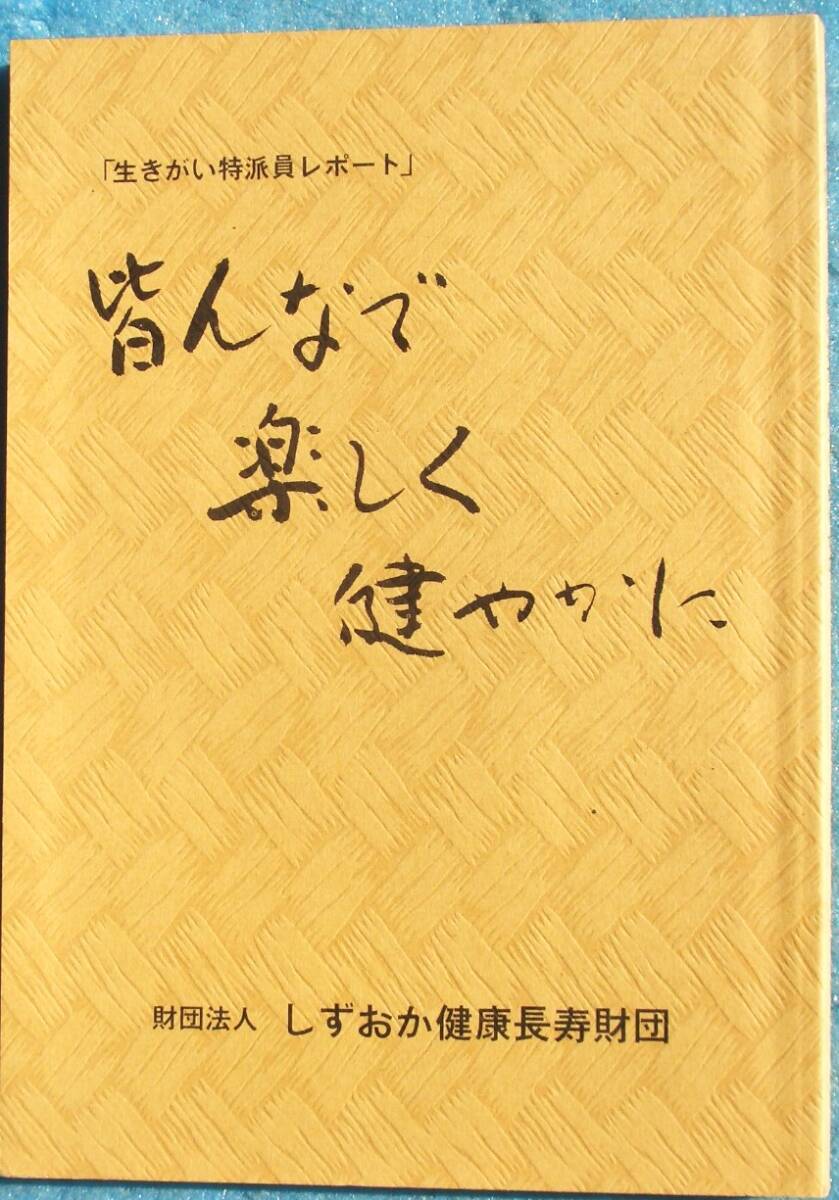 「生きがい特派員レポート」
皆んなで
楽しく
健やかに
財団法人 しずおか健康長寿財団